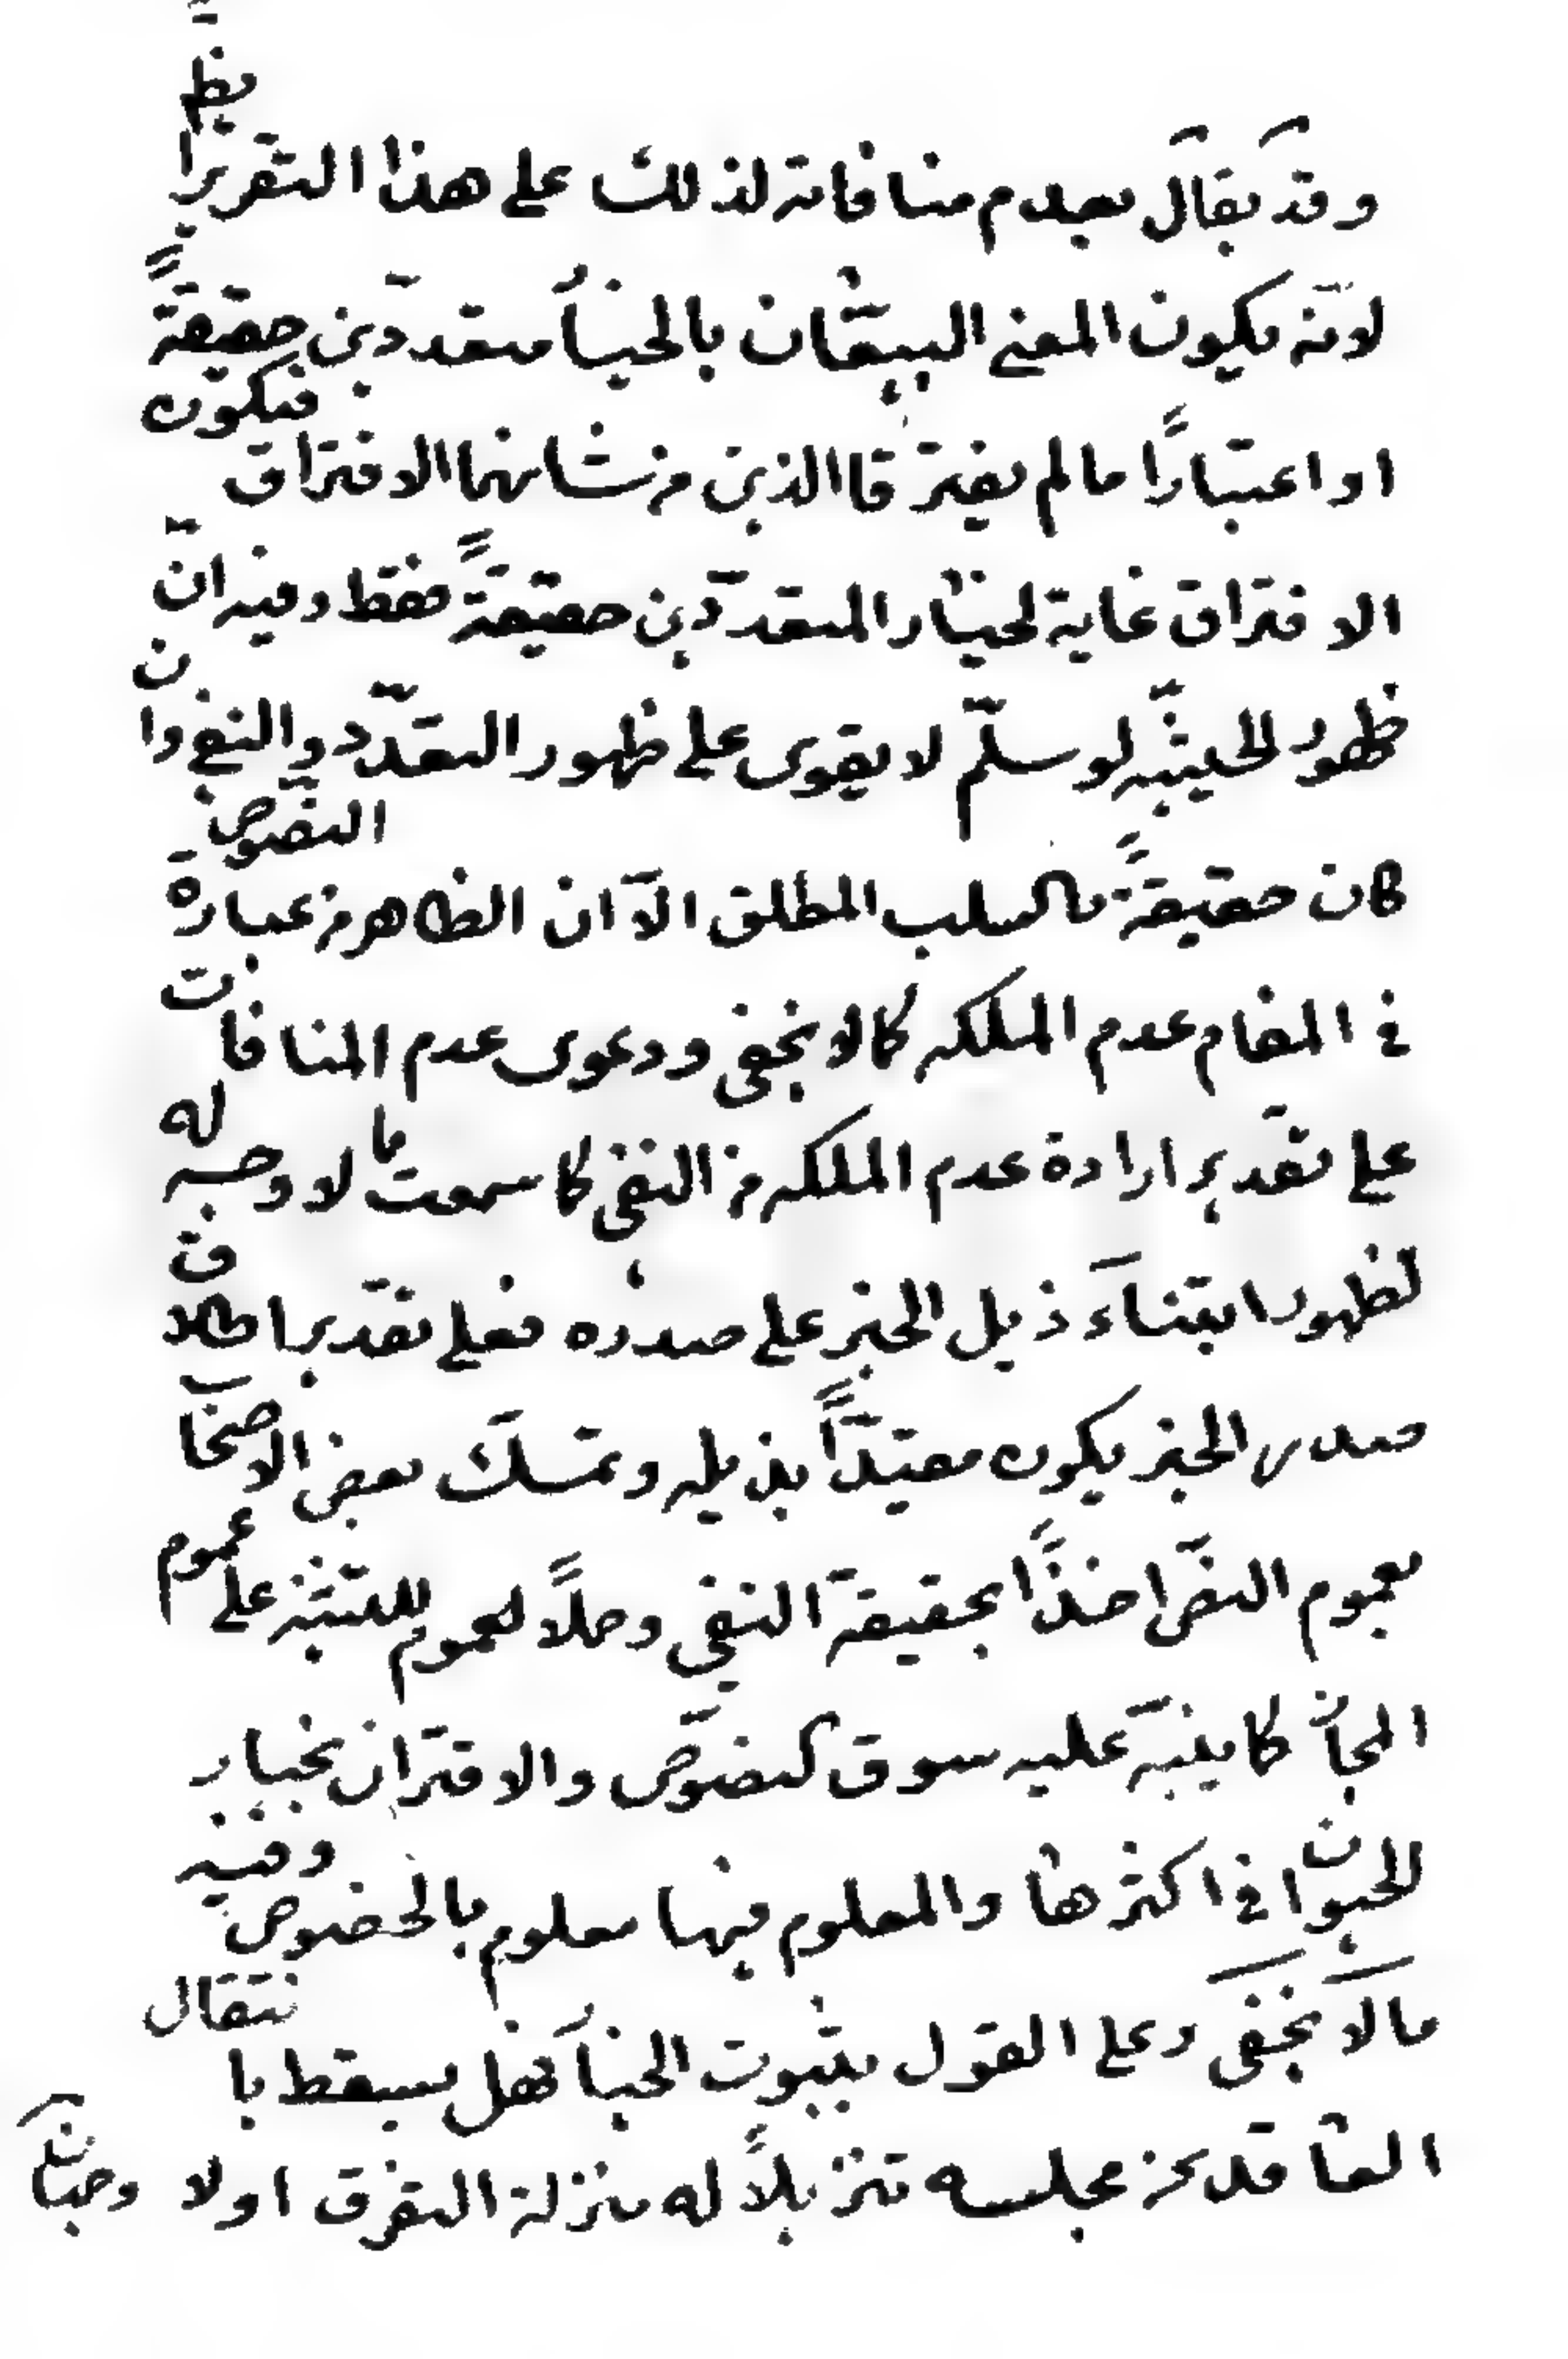 وقد يقال بعدم منافاته لذلك على هذا التقرير ايظم
لانه يكون المعنى البيعان بالخيار متعددين حقيقة
او اعتبارا ما لم يفترقا الذين من شانهما الافتراق فيكون
الافتراق غاية لخيار المتعددين حقيقة فقط وفيه ان
ظهور الحيثية لو سلم لا يقوى على ظهور التعدد والنفى وان
كان حقيقة فى السلب المطلق الا ان الظاهر من عبارة النصوص
فى المقام عدم الملكه كما لا يخفى ودعوى عدم المنافات
على تقدير ارادة عدم الملكه من النفى كما سمعت لا وجه له
لظهور ابتناء ذيل الخبر على صدره فعلى تقدير اطلاق
صدر الخبر يكون مقيدا بذيله وتمسك بعض الاصحاب
بعموم النص اخذا بحقيقة النفى وحملا لعموم للتثنيه على عموم
المجاز كما ينبه عليه سوق النصوص والاقتران بخيار
الحيوان فى اكثرها والمعلوم فيها معلوم بالخصوص وفيه
ما لا يخفى وعلى القول بثبوت الخيار فهل يسقط بانتقال
العاقد عن مجلسه تنزيلا له منزلة التفرق اولا وجهان